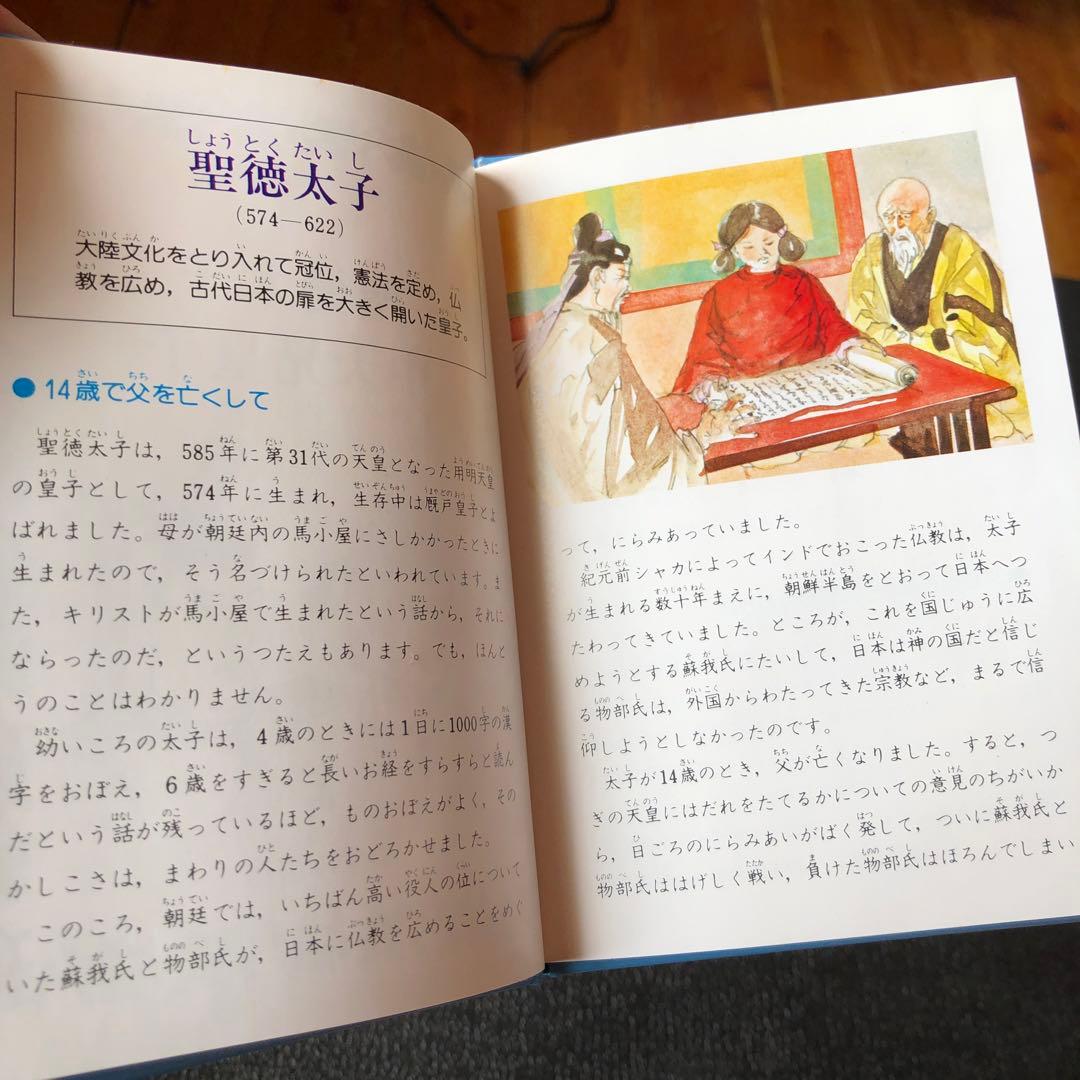 しょうとくたいし
聖徳太子
(574—622)
大陸文化をとり入れて冠位，憲法を定め，仏
教を広め，古代日本の扉を大きく開いた皇子。
●14歳で父を亡くして
聖徳太子は，585年に第31代の天皇となった用明天皇
の皇子として，574年に生まれ，生存中は厩戸皇子とよ
ばれました。母が朝廷内の馬小屋にさしかかったときに
生まれたので，そう名づけられたといわれています。ま
た，キリストが馬小屋で生まれたという話から，それに
ならったのだ，というつたえもあります。でも，ほんと
うのことはわかりません。
幼いころの太子は，4歳のときには1日に1000字の漢
字をおぼえ，6歳をすぎると長いお経をすらすらと読ん
だという話が残っているほど，ものおぼえがよく，その
かしこさは，まわりの人たちをおどろかせました。
このころ，朝廷では，いちばん高い役人の位について
いた蘇我氏と物部氏が，日本に仏教を広めることをめぐ
って，にらみあっていました。
紀元前シャカによってインドでおこった仏教は，太子
が生まれる数十年まえに，朝鮮半島をとおって日本へつ
たわってきていました。ところが，これを国じゅうに広
めようとする蘇我氏にたいして，日本は神の国だと信じ
る物部氏は，外国からわたってきた宗教など，まるで信
仰しようとしなかったのです。
太子が14歳のとき，父が亡くなりました。すると，つ
ぎの天皇にはだれをたてるかについての意見のちがいか
ら，日ごろのにらみあいがばく発して，ついに蘇我氏と
物部氏ははげしく戦い，負けた物部氏はほろんでしまい